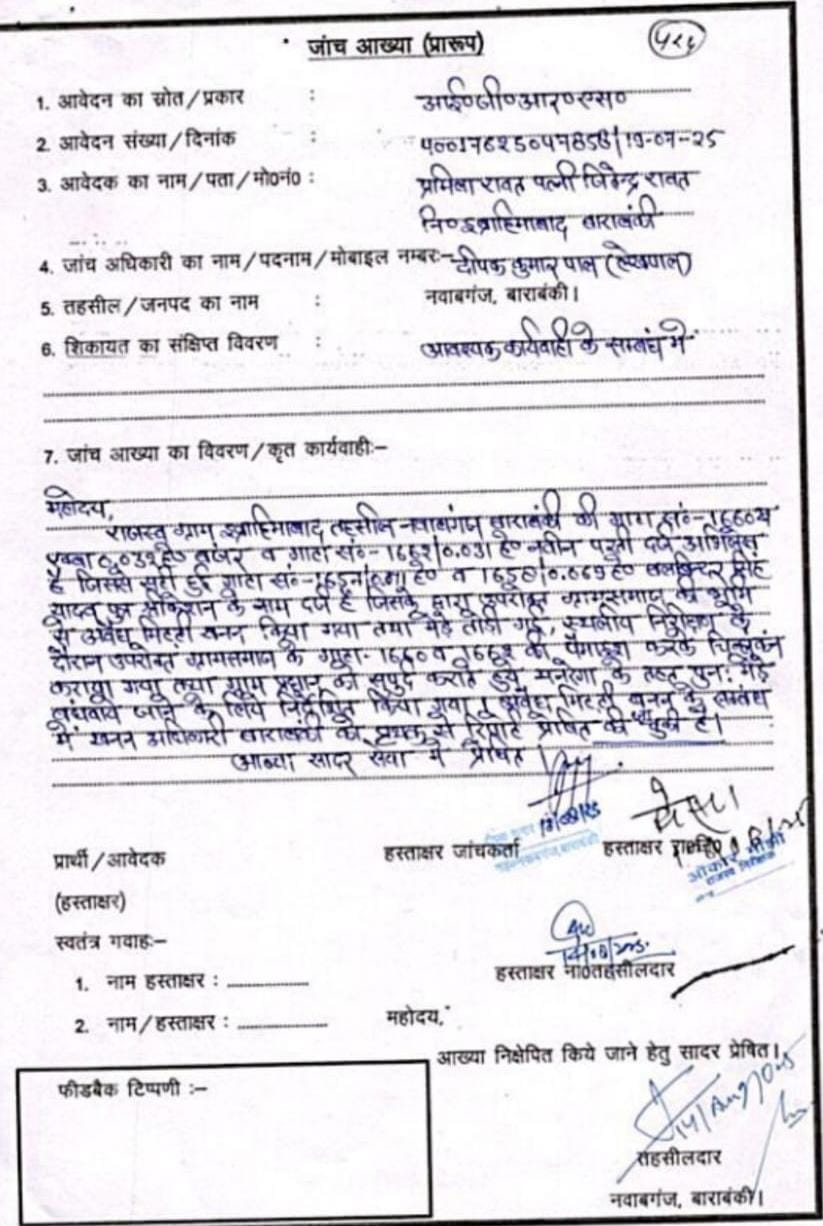 जांच आख्या (प्रारूप)
1. आवेदन का स्रोत/प्रकार : आई०जी०आर०एस०
2. आवेदन संख्या/दिनांक : 19-07-25
3. आवेदक का नाम/पता/मो0नं0 : प्रमिला रावत पत्नी जितेन्द्र रावत
नि० इब्राहिमाबाद बाराबंकी
4. जांच अधिकारी का नाम/पदनाम/मोबाइल नम्बरः- दीपक कुमार पाल (लेखपाल)
5. तहसील/जनपद का नाम : नवाबगंज, बाराबंकी।
6. शिकायत का संक्षिप्त विवरण : आवश्यक कार्यवाही के सम्बंध में
7. जांच आख्या का विवरण/कृत कार्यवाहीः-
महोदय,
राजस्व ग्राम इब्राहिमाबाद तहसील-नवाबगंज बाराबंकी की गाटा सं०-1660
बंजर व गाटा सं०-1662/0.031 हे० नवीन परती दर्ज अभिलेख
है जिससे सटी हुई गाटा सं०- हे० व हे० सिंह
यादव पुत्र के नाम दर्ज है जिसके द्वारा उपरोक्त ग्रामसमाज की भूमि
से अवैध मिट्टी खनन किया गया तथा मेड़े तोड़ी गई, स्थलीय निरीक्षण के
दौरान उपरोक्त ग्रामसमाज के गाटा- 1660 व 1662 की पैमाइश करके चिन्हांकन
कराया गया तथा ग्राम प्रधान को सुपुर्द करते हुये मनरेगा के तहत पुनः मेड़े
बंधवाये जाने के लिये निर्देशित किया गया। अवैध मिट्टी खनन के सम्बंध
में खनन अधिकारी बाराबंकी को पृथक से रिपोर्ट प्रेषित की जा चुकी है।
आख्या सादर सेवा में प्रेषित।
प्रार्थी/आवेदक हस्ताक्षर जांचकर्ता हस्ताक्षर
राजस्व निरीक्षक
(हस्ताक्षर)
स्वतंत्र गवाहः-
हस्ताक्षर ना0तहसीलदार
1. नाम हस्ताक्षर : ..............
2. नाम/हस्ताक्षर : ..............
महोदय,
आख्या निक्षेपित किये जाने हेतु सादर प्रेषित।
फीडबैक टिप्पणी :-
तहसीलदार
नवाबगंज, बाराबंकी।